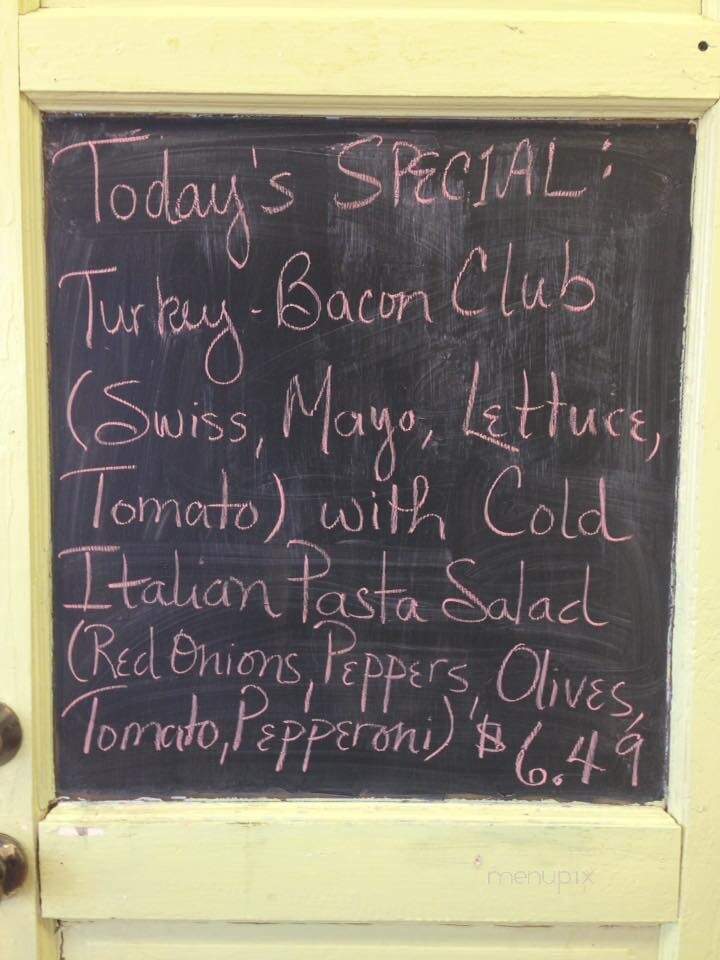 Today's SPECIAL:
Turkey-Bacon Club
(Swiss, Mayo, Lettuce,
Tomato) with Cold
Italian Pasta Salad
(Red Onions, Peppers, Olives,
Tomato, Pepperoni) $6.49
menupix